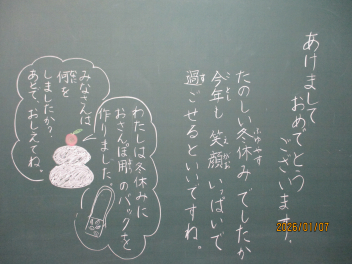 あけまして
おめでとう
ございます。
たのしい冬休みでしたか
ふゆやす
今年も笑顔いっぱいで
ことし
えがお
過ごせるといいですね。
す
わたしは冬休みに
おさんぽ用のバッグを
作りました
みなさんは、
何を
なに
しましたか？
あとで、おしえてね。
2026/01/07